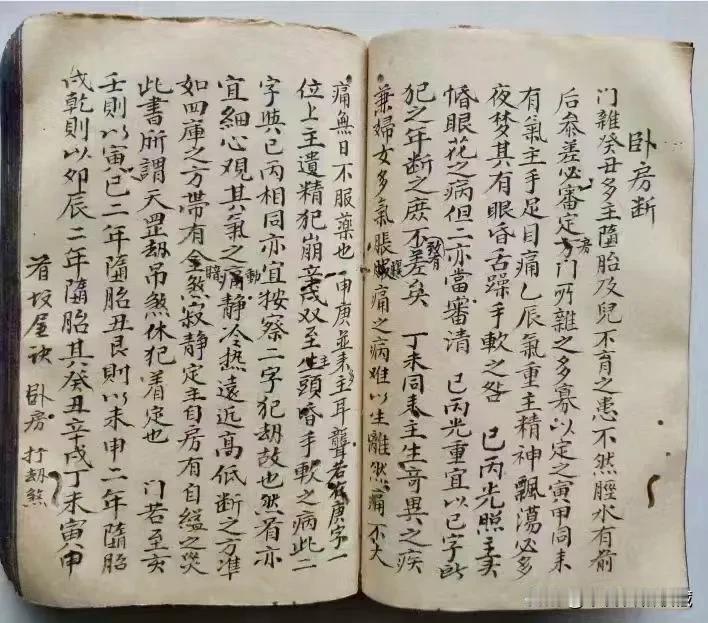 卧房断
門雜癸丑多主隨胎及兒不育之患不然脛水有前
后叅差必審定方門所雜之多寡以定之寅甲同来
有氣主手足目痛乙辰氣重主精神飄蕩必多
夜梦其有眼昏舌躁手軟之咎 巳丙光照主头
惛眼花之病但二亦當審清 巳丙光重宜以巳字所
犯之年断之庶不差矣 丁未同来主生竒異之疾
兼婦女多氣脹痛之病难以生離然痛不大
痛無日不服藥也 甲庚並来主耳聾若有庚字一
位上主遺精犯崩音或双至生頭昏手軟之病此二
字與巳丙相同亦宜按察二字犯刼故也然看亦
宜細心觀其氣之動静冷热遠近高低断之方準
如四庫之方帶有金煞寂静定主自房有自缢之災
此書所謂天罡刼吊煞休犯着定也 門若至亥
壬則以寅巳二年隨胎丑艮則以未申二年隨胎
戌乾則以卯辰二年隨胎其癸丑辛戌丁未寅甲
看坟屋诀 卧房 打刼煞